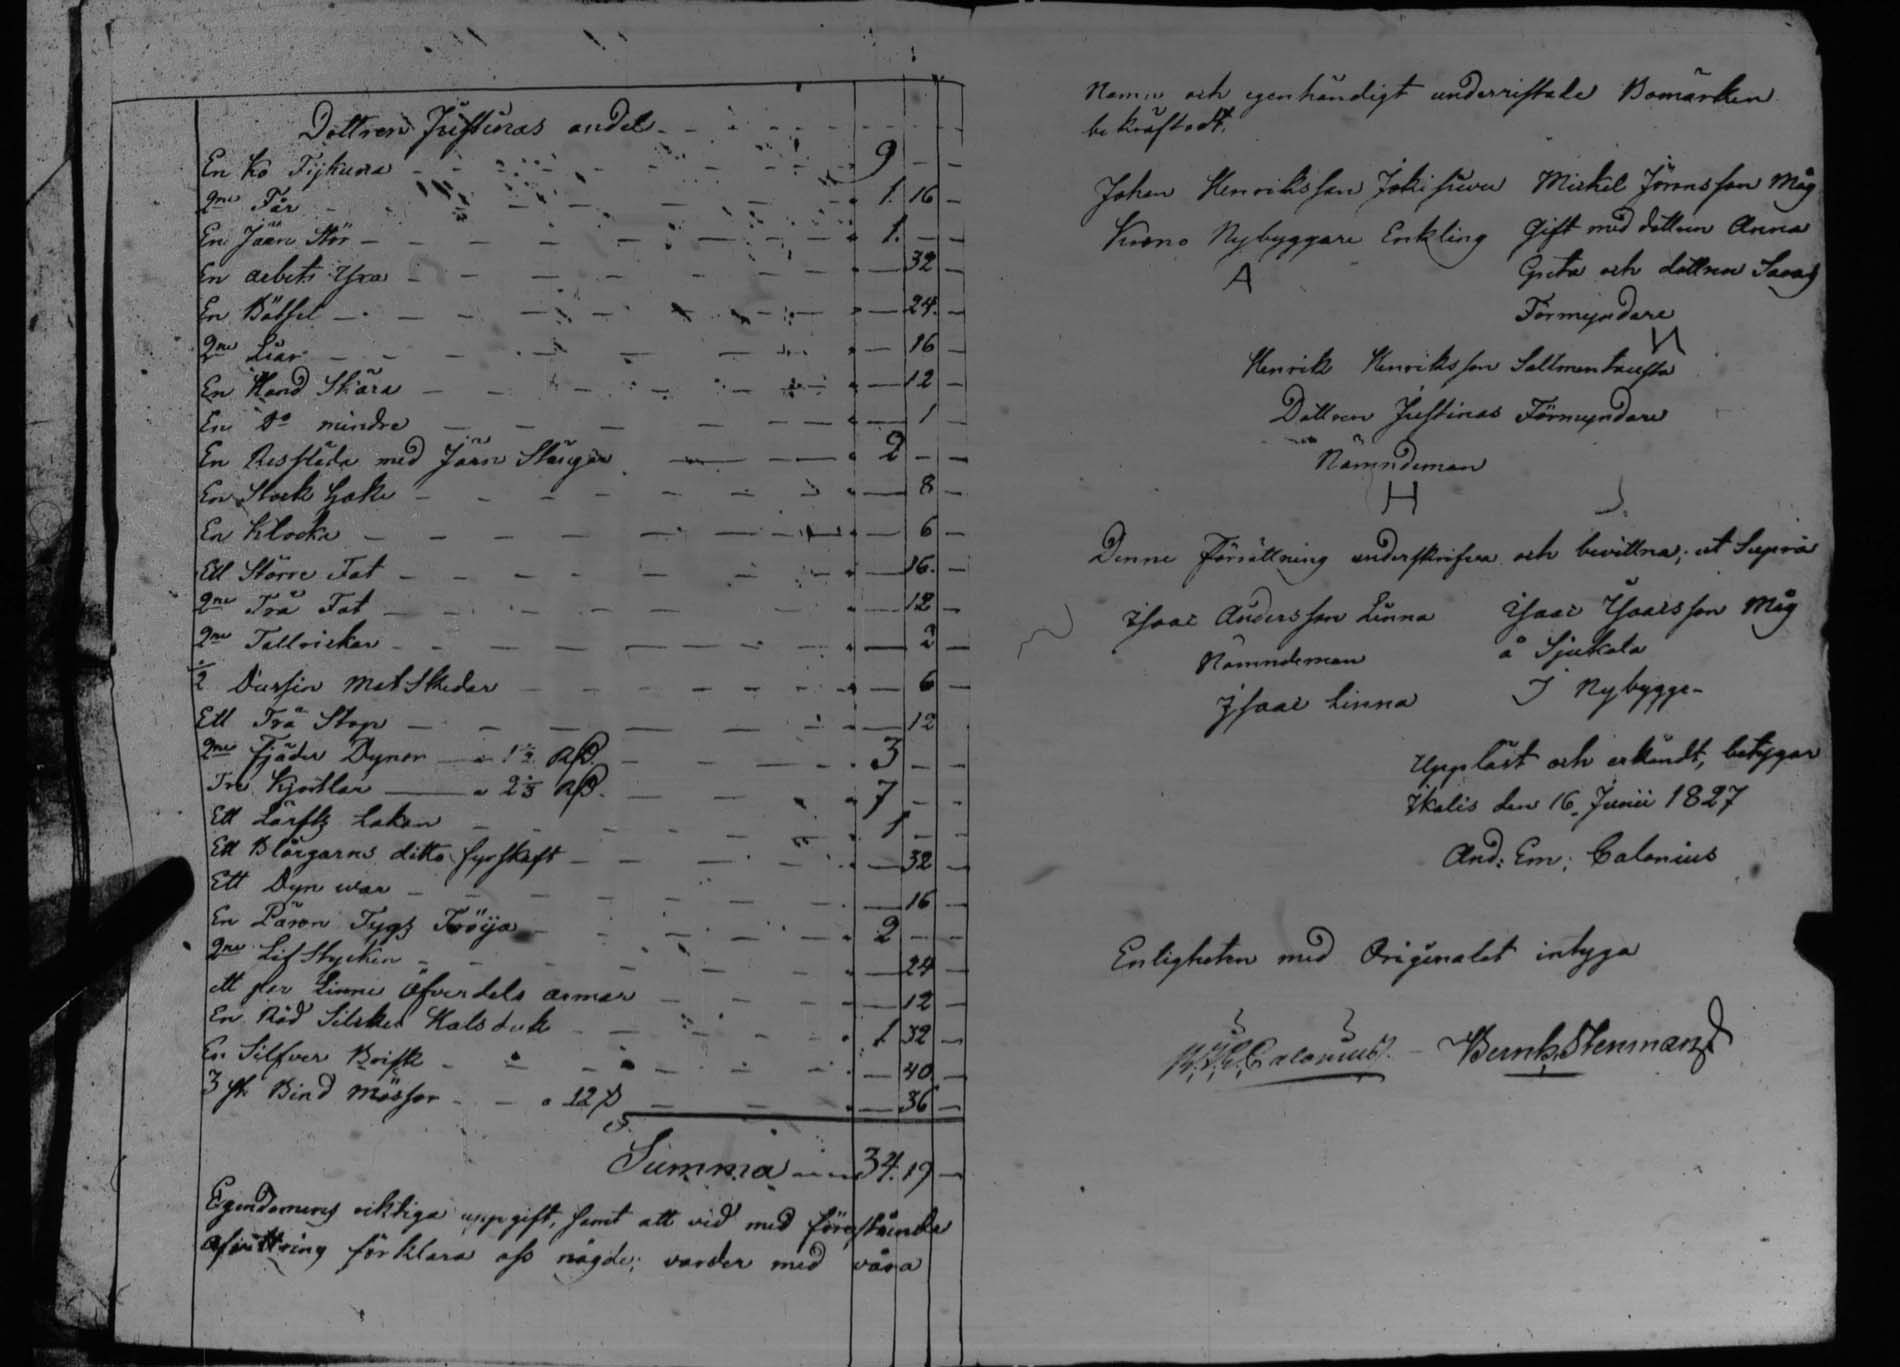 Dottren Justinas andel
En Ko Tijkuna - 9 - -
2ne Får - 1. 16 -
En Järn Stör - 1. - -
En arbets Yxa - 32 -
En Bötsel - 24. -
2ne Liar - 16 -
En Hand Skära - 12 -
En Do mindre - 1 -
En Resslåda med Järn Stänger - 2 - -
En Stock Hake - 8 -
En Klocka - 6 -
Ett Större Fat - 16. -
2ne Trä Fat - 12 -
2ne Tallrickar - 2 -
1/2 Dussin Mat Skedar - 6 -
Ett Trä Stop - 12 -
2ne Fjäder Dynor - a 1 1/2 Rβ. - 3 - -
Tre Kjortlar - a 2 1/3 Rβ. - 7 - -
Ett Lärftz Lakan - 1 - -
Ett Blårgarns ditto fyrskaft - 32 -
Ett Dyn war - 16 -
En Päron Tygs Tröija - 2 - -
2ne Lif Stycken - 24 -
ett par Linne Öfverdels armar - 12 -
En Röd Silkes Halsduk - 1 32 -
En Silfver Brisk - 40 -
3 st Bind Mössor - a 12 β - 36 -
Summa - 34. 19 -
Egendomens riktiga uppgift, samt att vid med förestående
afvittring förklara oss nögde; varder med våra
Namn och egenhändigt underristade Bomärken
bekräftadt.
Johan Henriksson Jokisuvu
Krono Nybyggare Enkling
A
Mickel Jöransson Måg
Gift med dottren Anna
Greta och dottren Saras
Förmyndare
Henrik Henriksson Sallmentausta
Dottren Justinas Förmyndare
Nämndeman
H
Denne Förrättning underskrifva och bevittna; ut Supra
Isaac Andersson Linna
Nämndeman
Isaac Linna
Isaac Isacsson Måg
å Sjukala
I Nybygge-
Uppläst och erkändt, betygar
Ikalis den 16. Junii 1827
And: Em: Calonius
Enligheten med Originalet intyga
Calonius. Bernh. Stenman